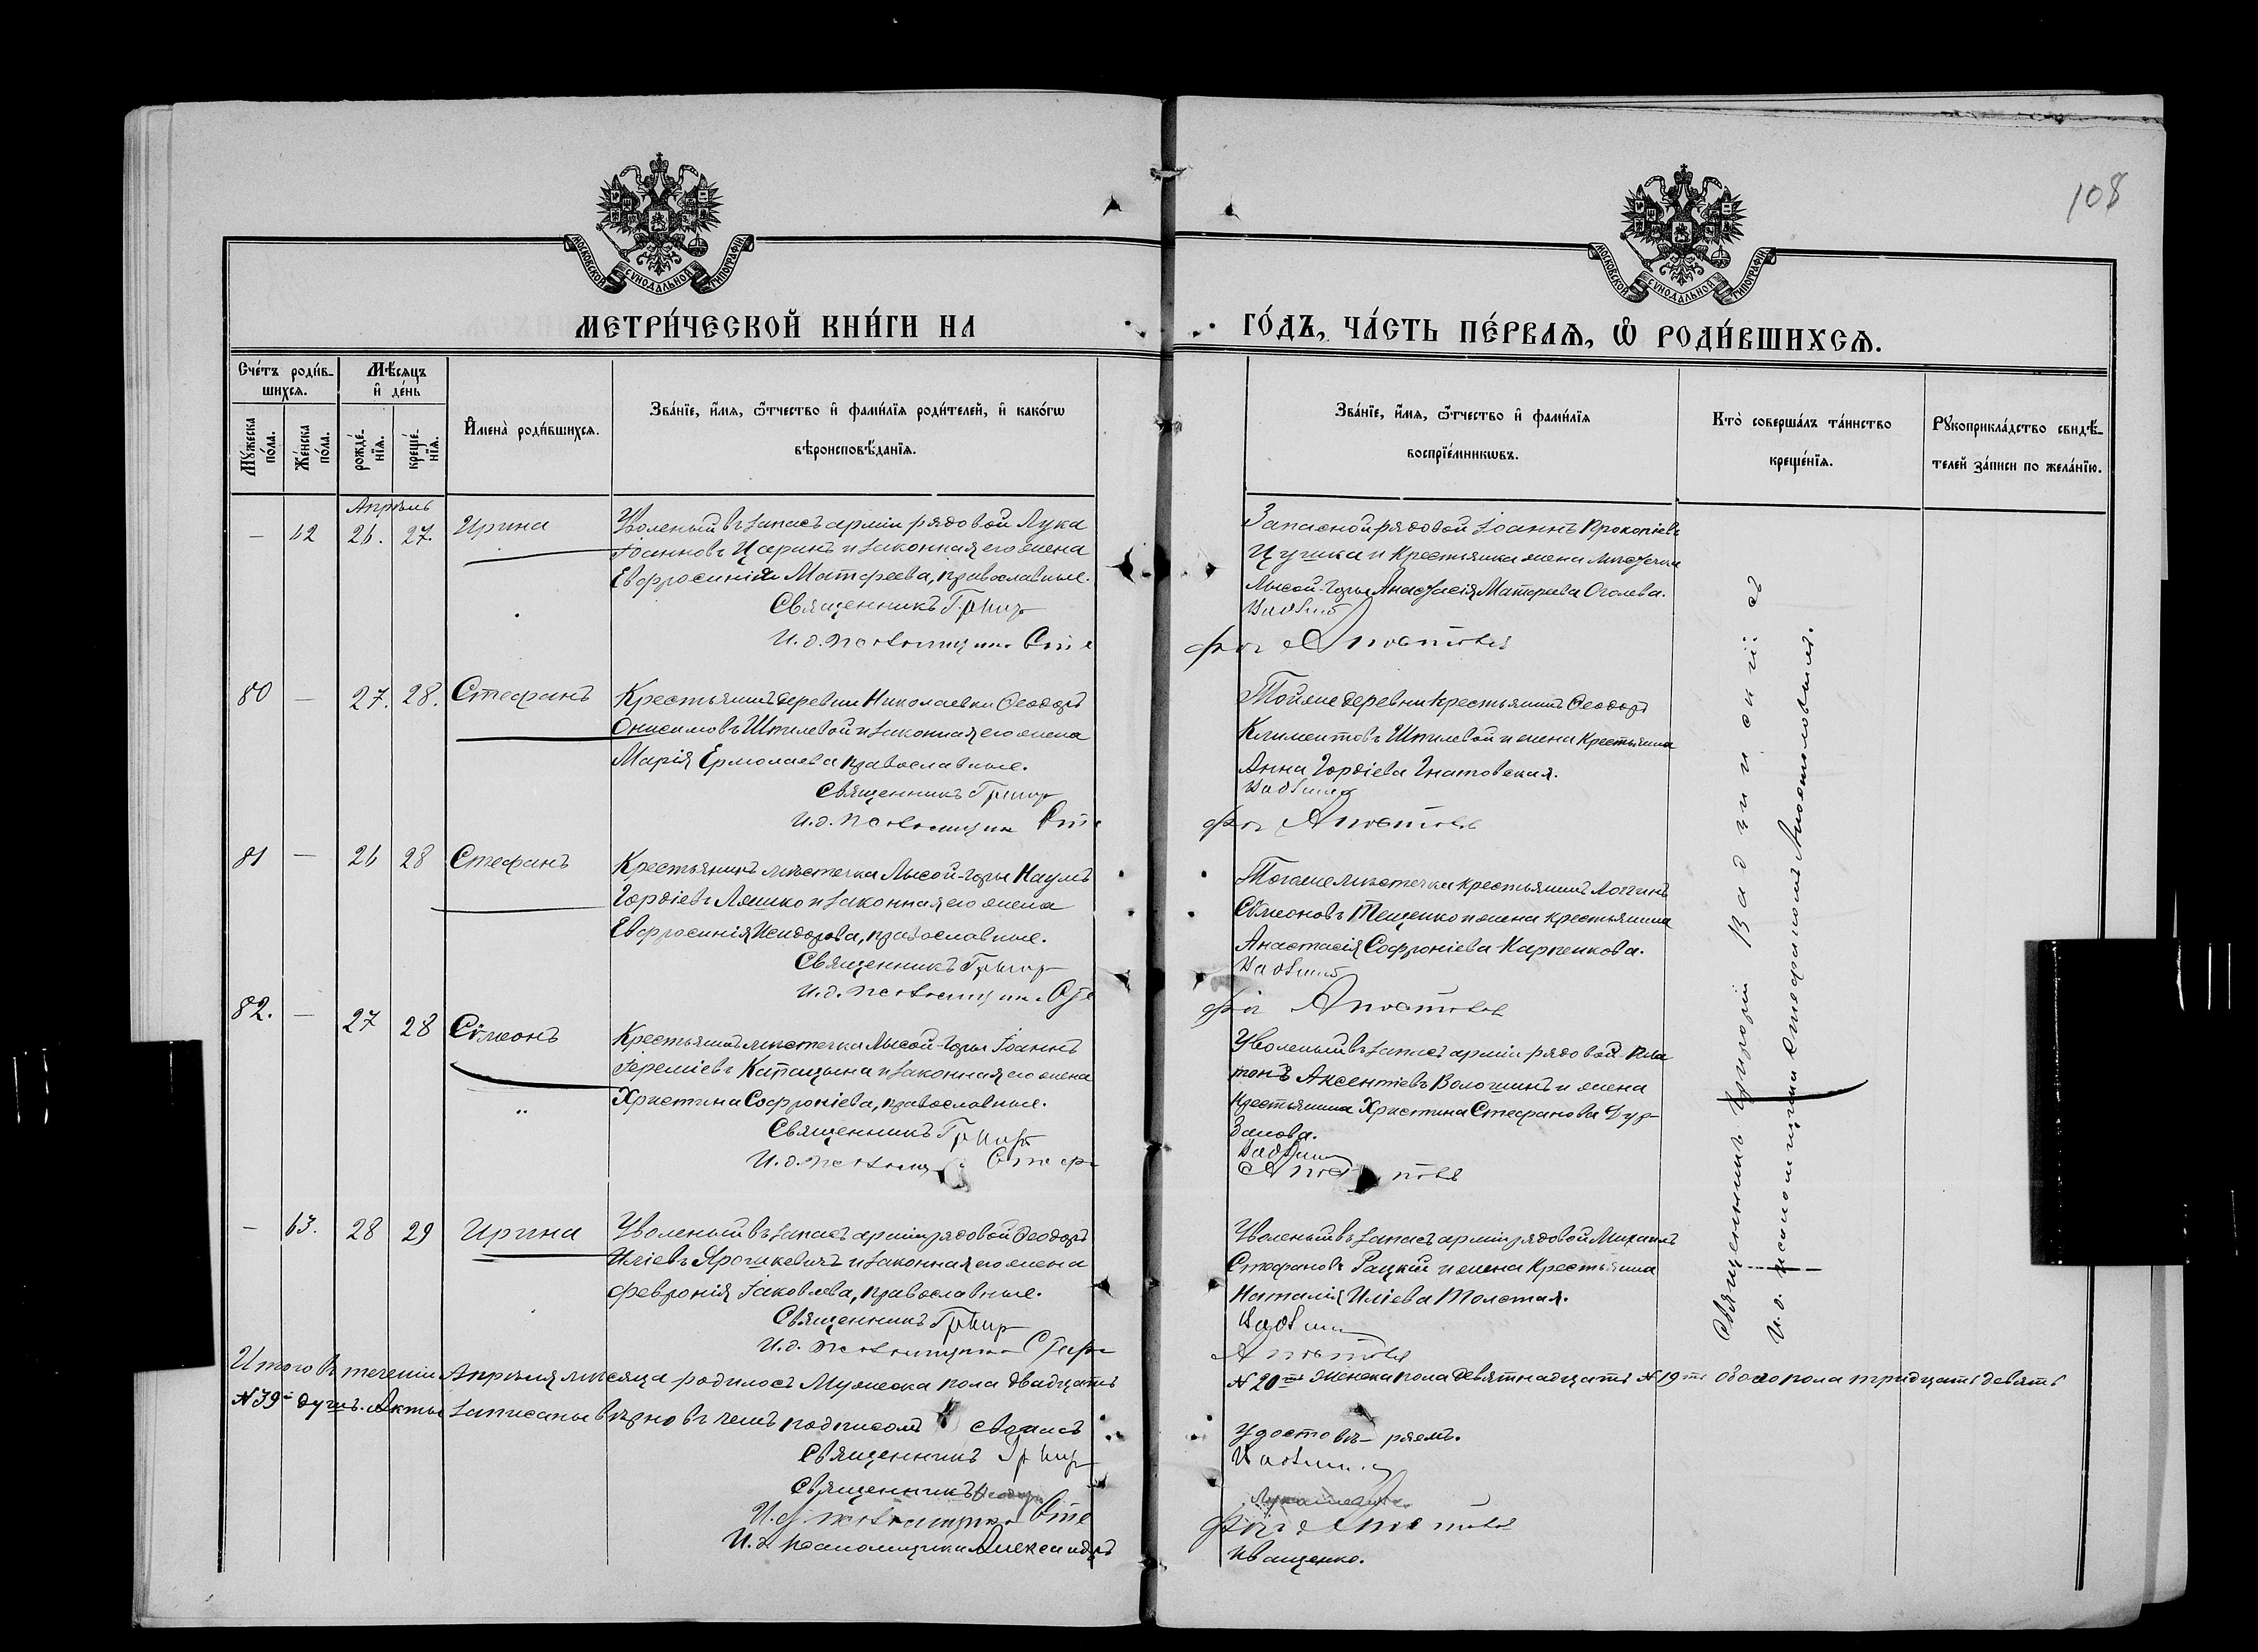 108
МОСКОВСКОЙ СѴНОДАЛЬНОЙ ТИПОГРАФІИ.
МОСКОВСКОЙ СѴНОДАЛЬНОЙ ТИПОГРАФІИ.
МЕТРИ́ЧЕСКОЙ КНИ́ГИ НА
ГО́ДЪ, ЧА́СТЬ ПЕ́РВАѦ, Ѿ РОДИ́ВШИХСѦ.
Сче́тъ роди́в-
шихсѧ.
Мѣ́сяцъ
и҆ де́нь
Мꙋ́жеска
по́ла.
Же́нска
по́ла.
рожде́-
нїѧ.
креще́-
нїѧ.
И҆мена̀ роди́вшихсѧ.
Зва́нїе, и҆́мѧ, ѻ҆́тчество и҆ фами́лїѧ роди́телей, и҆ како́гѡ
вѣроисповѣ́данїѧ.
Зва́нїе, и҆́мѧ, ѻ҆́тчество и҆ фами́лїѧ
воспрїе́мникѡвъ.
Кто̀ соверша́лъ та́инство
креще́нїѧ.
Рꙋкоприкла́дство свидѣ́-
телей за́писи по жела́нїю.
Апрѣль
— 62 26. 27. Ирина
Уволеный въ запасъ арміи рядовой Лука
Іоанновъ Царанъ и законная его жена
Евфросинія Матфеева, православные.
Священникъ Григор
И. д. псаломщика Сте
Запасной рядовой Іоаннъ Прокопіевъ
и крестьянка жена мѣстечка
Лысой-Горы Анастасія Матфеева Оголева.
Вадзинс
фан Апостолов
80 — 27. 28. Стефанъ
Крестьянинъ деревни Николаевки Ѳеодоръ
Онисимовъ Шпилевой и законная его жена
Марія Ермолаева православные.
Священникъ Григор
И. д. псаломщик Сте
Тойже деревни крестьянинъ Ѳеодоръ
Климентовъ Шпилевой и жена крестьянина
Анна Гордіева Гнатовская.
фан Апостолов
81 — 26 28 Стефанъ
Крестьянинъ мѣстечка Лысой-Горы Наумъ
Гордіевъ Ляшко и законная его жена
Евфросинія Исидорова, православные.
Священникъ Григор
И. д. псаломщика Сте
Тогоже мѣстечка крестьянинъ Логгинъ
Сѵмеоновъ Тещенко и жена крестьянина
Анастасія Софроніева Карпенкова.
Апостолов
82. — 27 28 Сѵмеонъ
Крестьянинъ мѣстечка Лысой-Горы Іоаннъ
Іереміевъ Катацына и законная его жена
Христина Софроніева, православные.
Священникъ Григор
И. д. псаломщ Стеф
Уволеный въ запасъ арміи рядовой Пла
тонъ Аксентіевъ Волошинъ и жена
крестьянина Христина Стефанова
Апостолов
— 63. 28 29 Ирина
Уволеный въ запасъ арміи рядовой Ѳеодоръ
Иліевъ Ярошкевичъ и законная его жена
Февронія Іаковлева, православные.
Священникъ Григор
И. д. псаломщика Стефа
Уволеный въ запасъ арміи рядовой Михаилъ
Стефановъ Рацкій и жена крестьянина
Наталія Иліева Толстая.
Апостолов
Священникъ Григорій Вадзинскій съ
и. д. псаломщика Стефаномъ Апостоловымъ.
Итого въ теченіи Апрѣля мѣсяца родилось Мужеска пола двадцать
№ 20ть женска пола девятнадцать № 19ть обоего пола тридцать девять
№ 39ь душъ. Акты записаны вѣрно въ чемъ подписомъ своимъ
удостовѣ- ряемъ.
Священникъ Григор
Священникъ
И. д. псаломщика Сте
фан Апостолов
И. д. псаломщика Александръ
Иващенко.